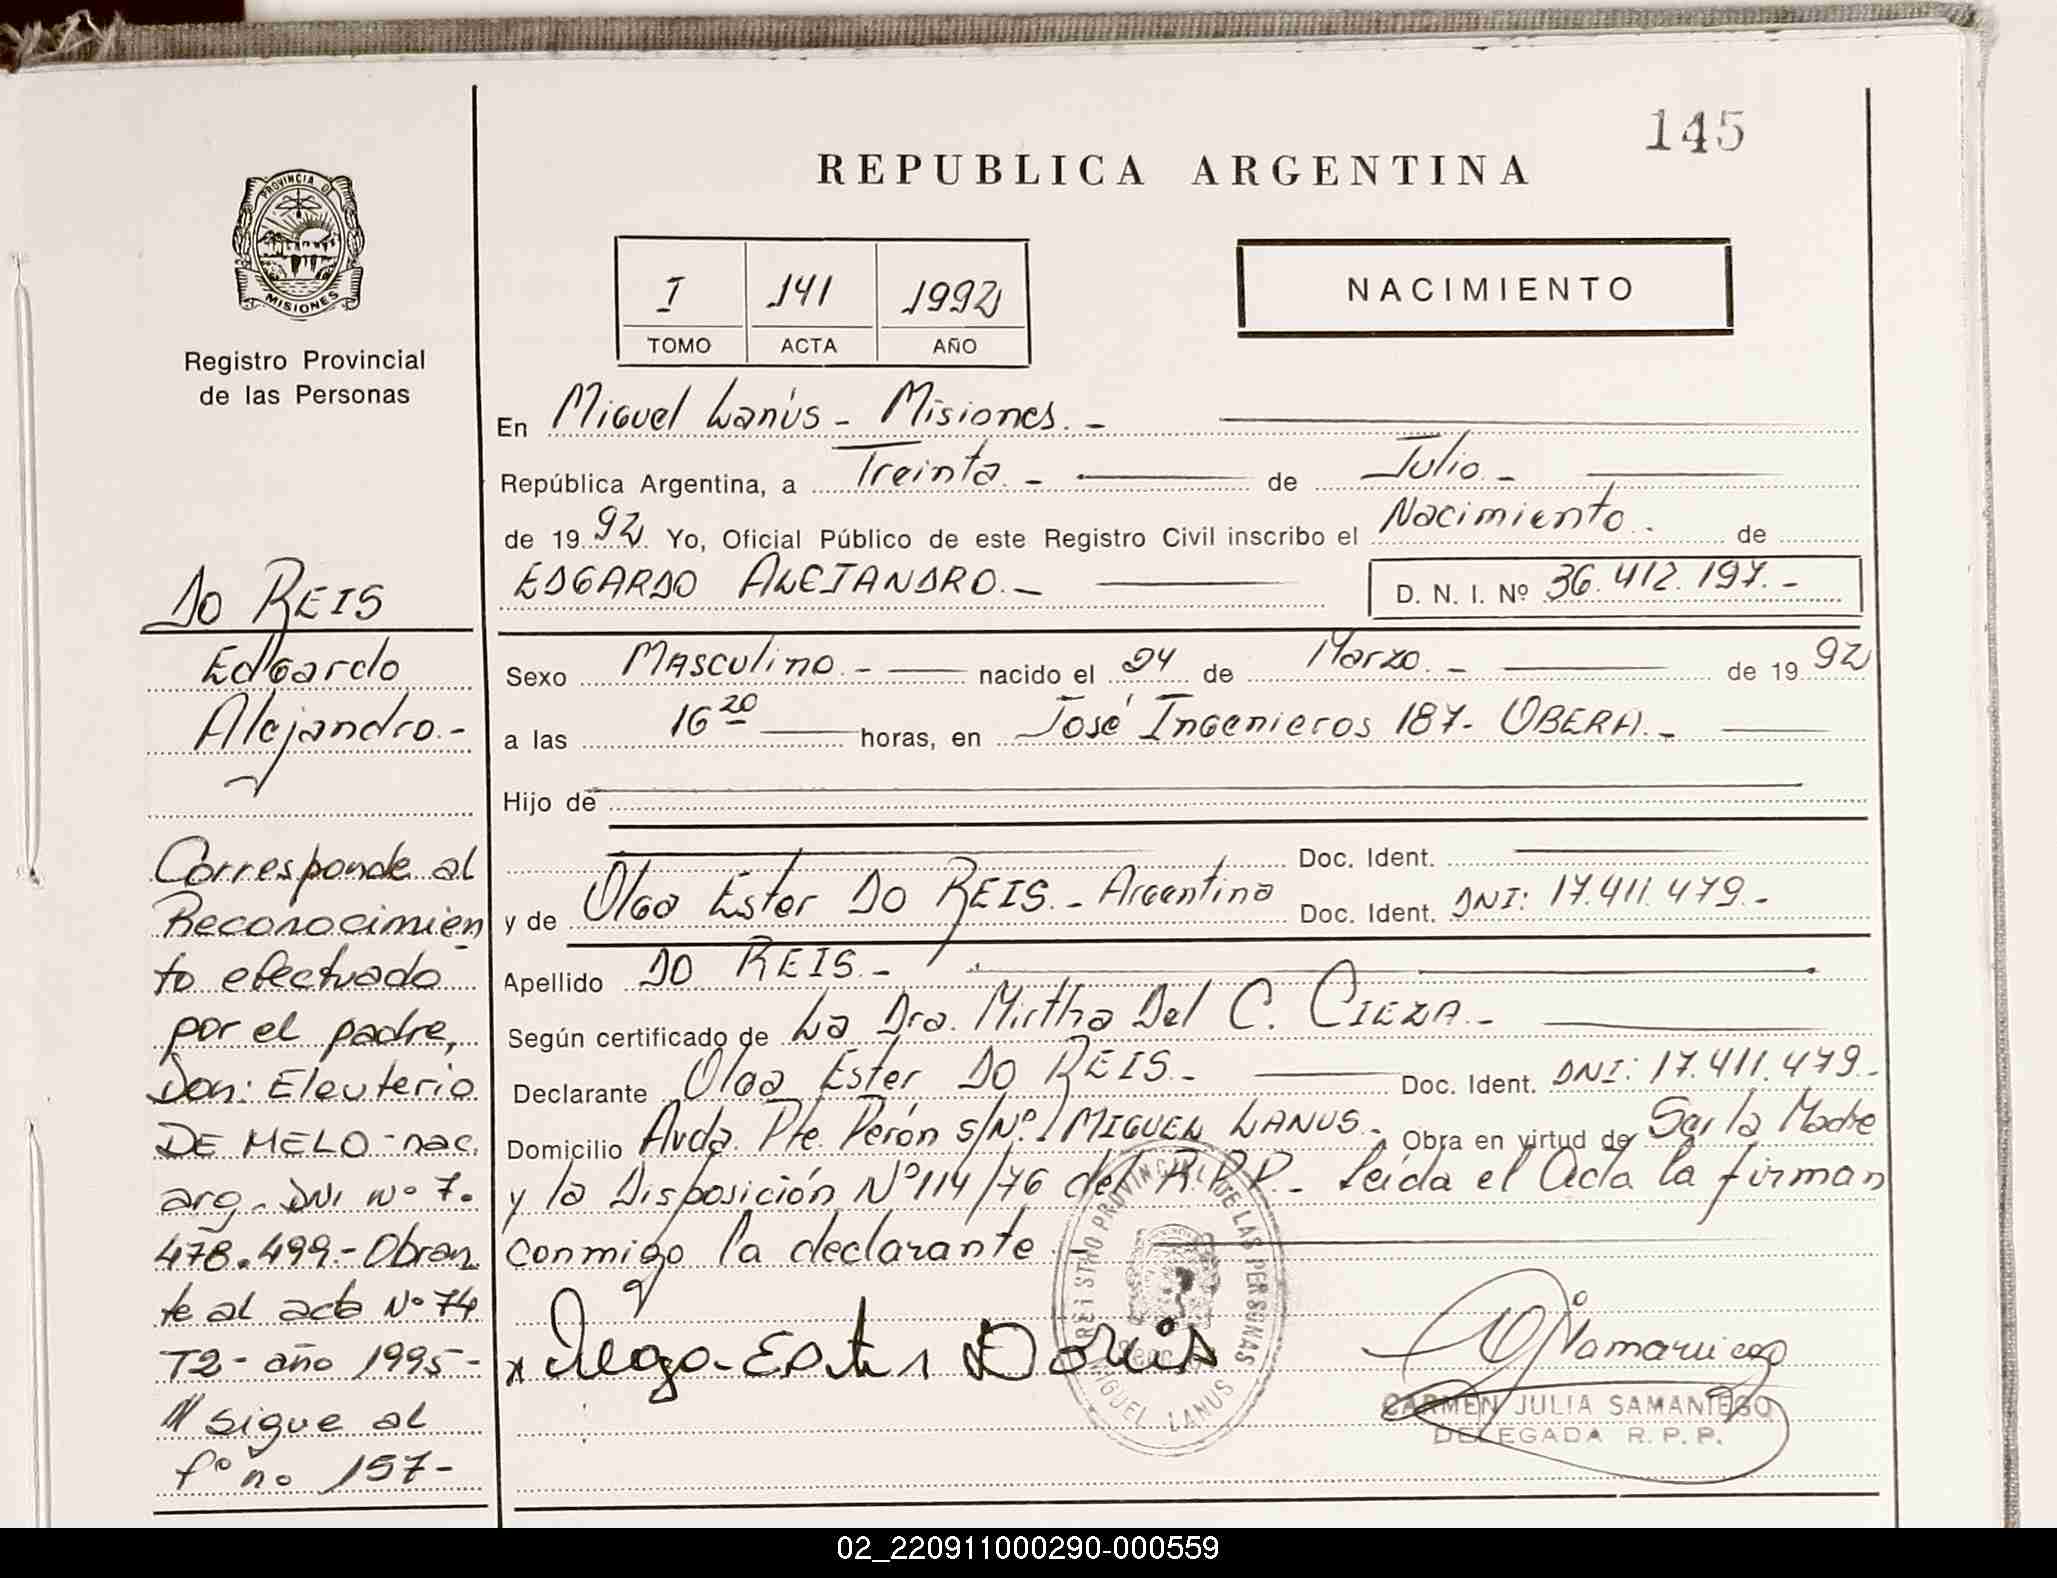 145
REPUBLICA ARGENTINA
PROVINCIA DE
MISIONES
Registro Provincial
de las Personas
I 141 1992
TOMO ACTA AÑO
NACIMIENTO
En Miguel Lanús - Misiones. -
República Argentina, a Treinta. - de Julio. -
de 19 92 Yo, Oficial Público de este Registro Civil inscribo el Nacimiento. de
EDGARDO ALEJANDRO. -
D. N. I. Nº 36.412.197. -
Sexo Masculino. - nacido el 24 de Marzo. - de 19 92
a las 16 20 horas, en José Ingenieros 187- OBERA. -
Hijo de
Doc. Ident.
y de Olga Ester DO REIS. - Argentina Doc. Ident. DNI: 17.411.479. -
Apellido DO REIS. -
Según certificado de La Dra. Mirtha Del C. CIEZA. -
Declarante Olga Ester DO REIS. - Doc. Ident. DNI: 17.411.479. -
Domicilio Avda. Pte. Perón s/Nº. MIGUEL LANUS. - Obra en virtud de Ser la Madre
y la Disposición Nº 114/76 del R.P.P. - Leída el Acta la firman
conmigo la declarante. -
x Olga Ester Do Reis
REGISTRO PROVINCIAL DE LAS PERSONAS
MIGUEL LANUS
CARMEN JULIA SAMANIEGO
DELEGADA R. P. P.
DO REIS
Edgardo
Alejandro. -
Corresponde al
Reconocimien
to efectuado
por el padre,
Don: Eleuterio
DE MELO - nac.
arg. DNI nº 7.
478.499. - Obran
te al acta Nº 74
T2 - año 1995 -
// sigue al
fº nº 157 -
02_220911000290-000559